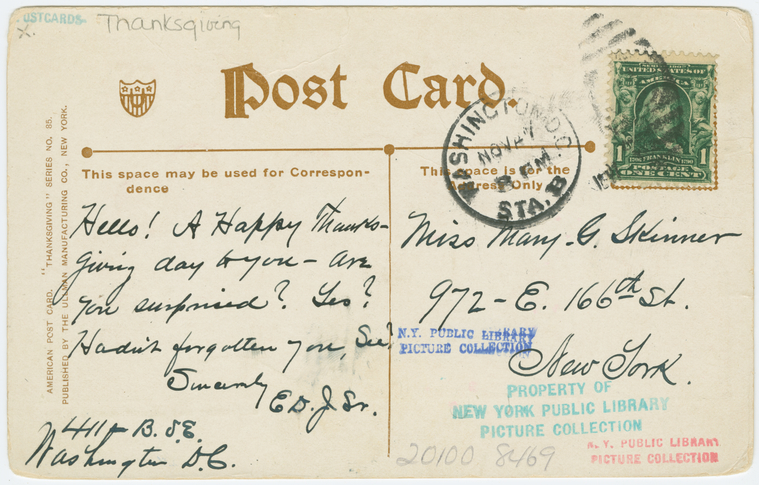 POSTCARDS-
X.
Thanksgiving
Post Card.
UNITED STATES OF
AMERICA
FRANKLIN
1 1
POSTAGE
ONE CENT
WASHINGTON, D.C.
NOV
PM
STA. B
This space may be used for Correspon-
dence
This space is for the
Address Only
AMERICAN POST CARD. "THANKSGIVING" SERIES NO. 85.
PUBLISHED BY THE ULLMAN MANUFACTURING CO., NEW YORK.
Hello! A Happy Thanks-
giving day to you - are
you surprised? Yes?
Hadn't forgotten you, See?
Sincerely
E.D.J. Sr.
411 B. S.E.
Washington D.C.
Miss Mary. G. Skinner
972 - E. 166th St.
New York.
N.Y. PUBLIC LIBRARY
PICTURE COLLECTION
PROPERTY OF
NEW YORK PUBLIC LIBRARY
PICTURE COLLECTION
N.Y. PUBLIC LIBRARY
PICTURE COLLECTION
20100 8469